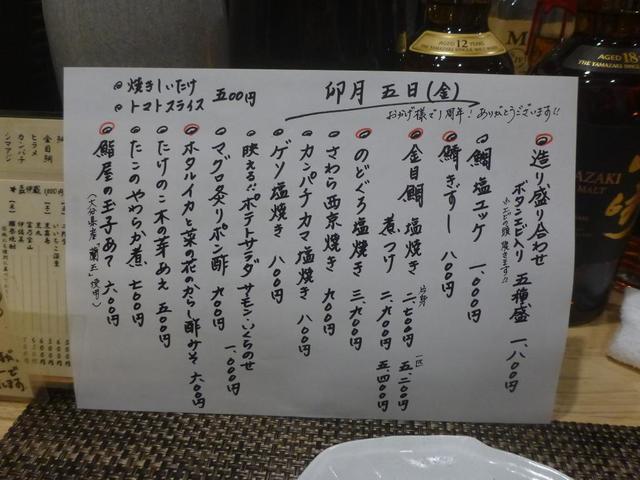 卯月 五日(金)
おかげ様で1周年!ありがとうございます!!
◎造り盛り合わせ
ボタンエビ入り 五種盛 一、八〇〇円
◎鯛 塩ユッケ 一、〇〇〇円
◎鯖きずし 八〇〇円
◎金目鯛 塩焼き 煮つけ
片身 二、七〇〇円
一匹 五、二〇〇円
二、九〇〇円 五、四〇〇円
◎のどぐろ塩焼き 三、九〇〇円
◎さわら西京焼き 九〇〇円
◎カンパチカマ塩焼き 八〇〇円
◎ゲソ塩焼き 八〇〇円
◎映える!!ポテトサラダ サーモン・いくらのせ 一、〇〇〇円
◎マグロ炙りポン酢 九〇〇円
◎ホタルイカと菜の花のからし酢みそ 六〇〇円
◎たけのこ木の芽あえ 五〇〇円
◎たこのやわらか煮 七〇〇円
◎鮨屋の玉子あて 六〇〇円
(大分県産「蘭王」使用)
◎焼きしいたけ
◎トマトスライス 五〇〇円
AGED 12 YEARS
AGED 18
THE YAMAZAKI
金目鯛
ヒラメ
カンパチ
シマアジ